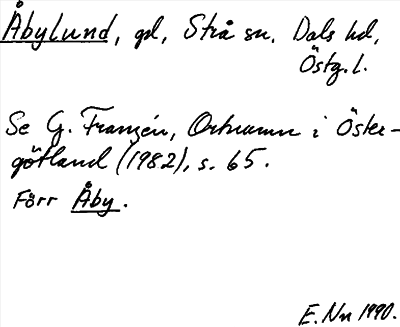 Åbylund, gd, Strå sn. Dals hd,
Östg. l.
Se G. Franzén, Ortnamn i Öster-
götland (1982), s. 65.
Förr Åby.
E. Nn 1990.